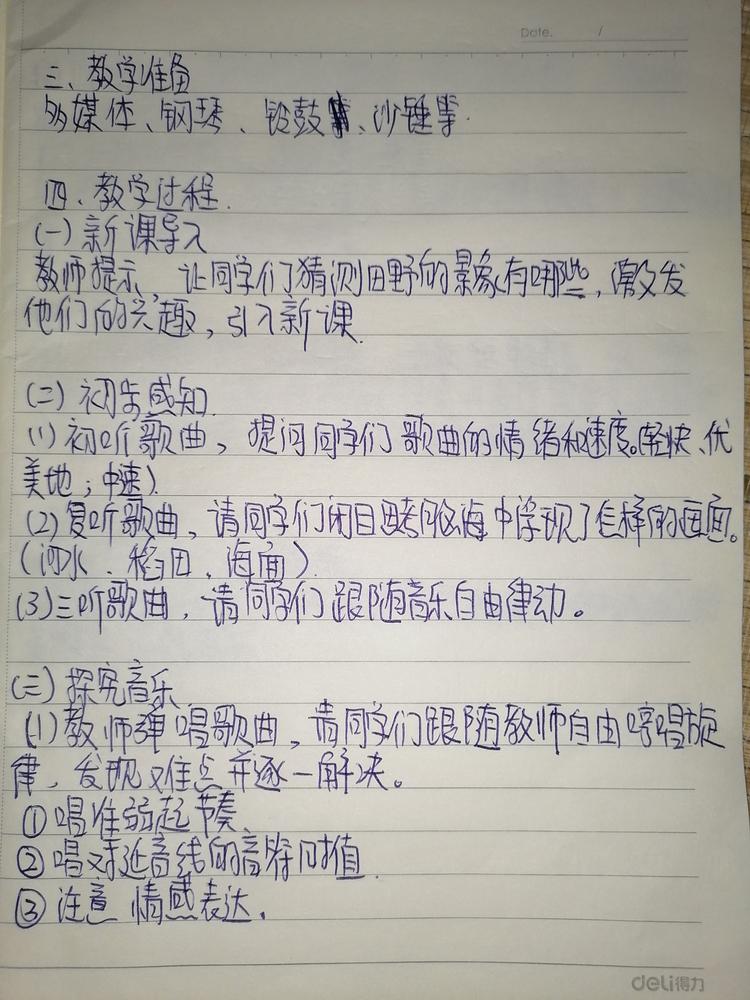 Date. /
三、教学准备
多媒体、钢琴、铃鼓、沙锤等.
四、教学过程.
(一)新课导入
教师提示,让同学们猜测田野的景象有哪些,激发
他们的兴趣,引入新课.
(二)初步感知.
(1)初听歌曲,提问同学们歌曲的情绪和速度。(轻快、优
美地;中速)
(2)复听歌曲,请同学们闭目思考脑海中浮现了怎样的画面。
(河水、稻田、海面)
(3)三听歌曲,请同学们跟随音乐自由律动。
(三)探究音乐.
(1)教师弹唱歌曲,请同学们跟随教师自由哼唱旋
律,发现难点并逐一解决。
①唱准弱起节奏、
②唱对延音线的音符时值.
③注意情感表达.
deli得力